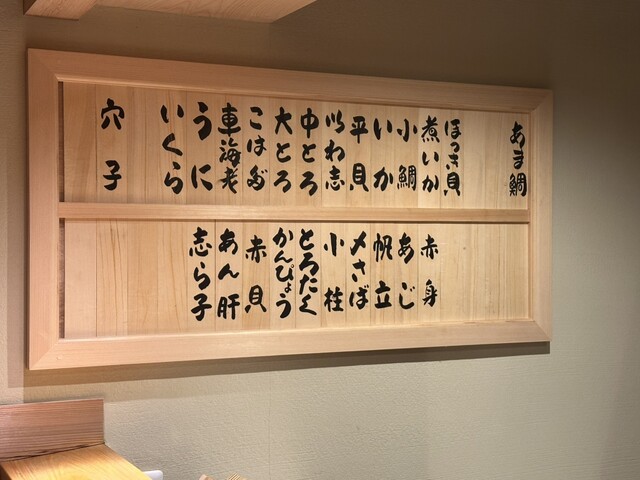 あま鯛
ほっき貝
煮いか
小鯛
いか
平貝
いわ志
中とろ
大とろ
こはだ
車海老
うに
いくら
穴子
赤身
あじ
帆立
〆さば
小柱
とろたく
かんぴょう
赤貝
あん肝
志ら子